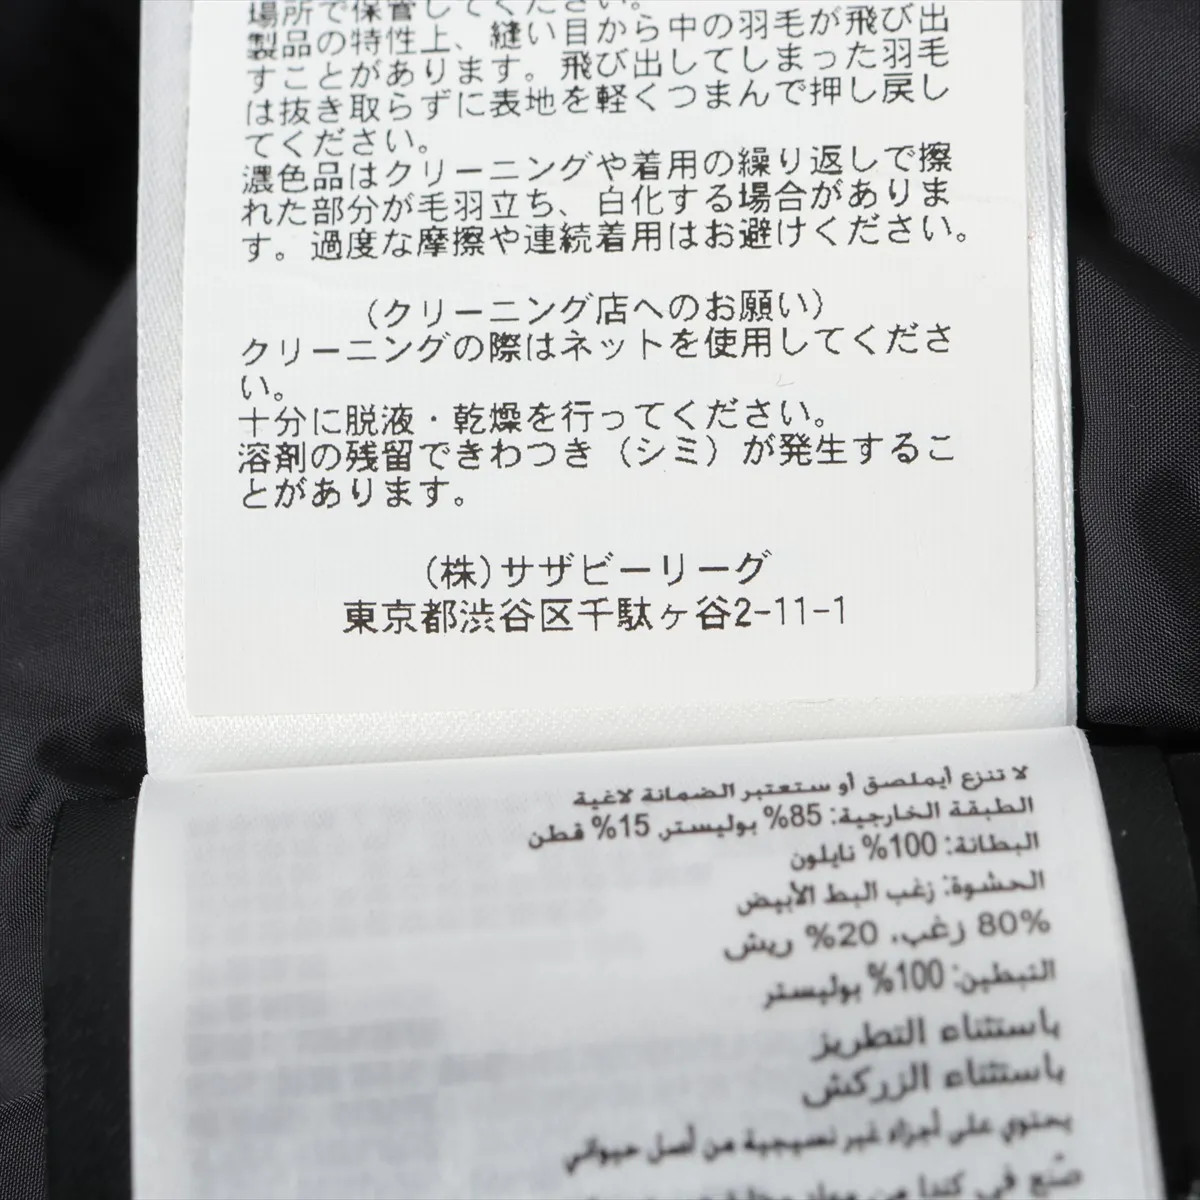 場所で保管してください。
製品の特性上、縫い目から中の羽毛が飛び出
すことがあります。飛び出してしまった羽毛
は抜き取らずに表地を軽くつまんで押し戻し
てください。
濃色品はクリーニングや着用の繰り返しで擦
れた部分が毛羽立ち、白化する場合がありま
す。過度な摩擦や連続着用はお避けください。
(クリーニング店へのお願い)
クリーニングの際はネットを使用してくださ
い。
十分に脱液・乾燥を行ってください。
溶剤の残留できわつき（シミ）が発生するこ
とがあります。
(株)サザビーリーグ
東京都渋谷区千駄ヶ谷2-11-1
لا تنزع أيملصق أو ستعتبر الضمانة لاغية
الطبقة الخارجية: 85% بوليستر, 15% قطن
البطانة: 100% نايلون
الحشوة: زغب البط الأبيض
80% زغب، 20% ريش
التبطين: 100% بوليستر
باستثناء التطريز
باستثناء الزركش
يحتوي على أجزاء غير نسيجية من أصل حيواني
صُنع في كندا من مواد